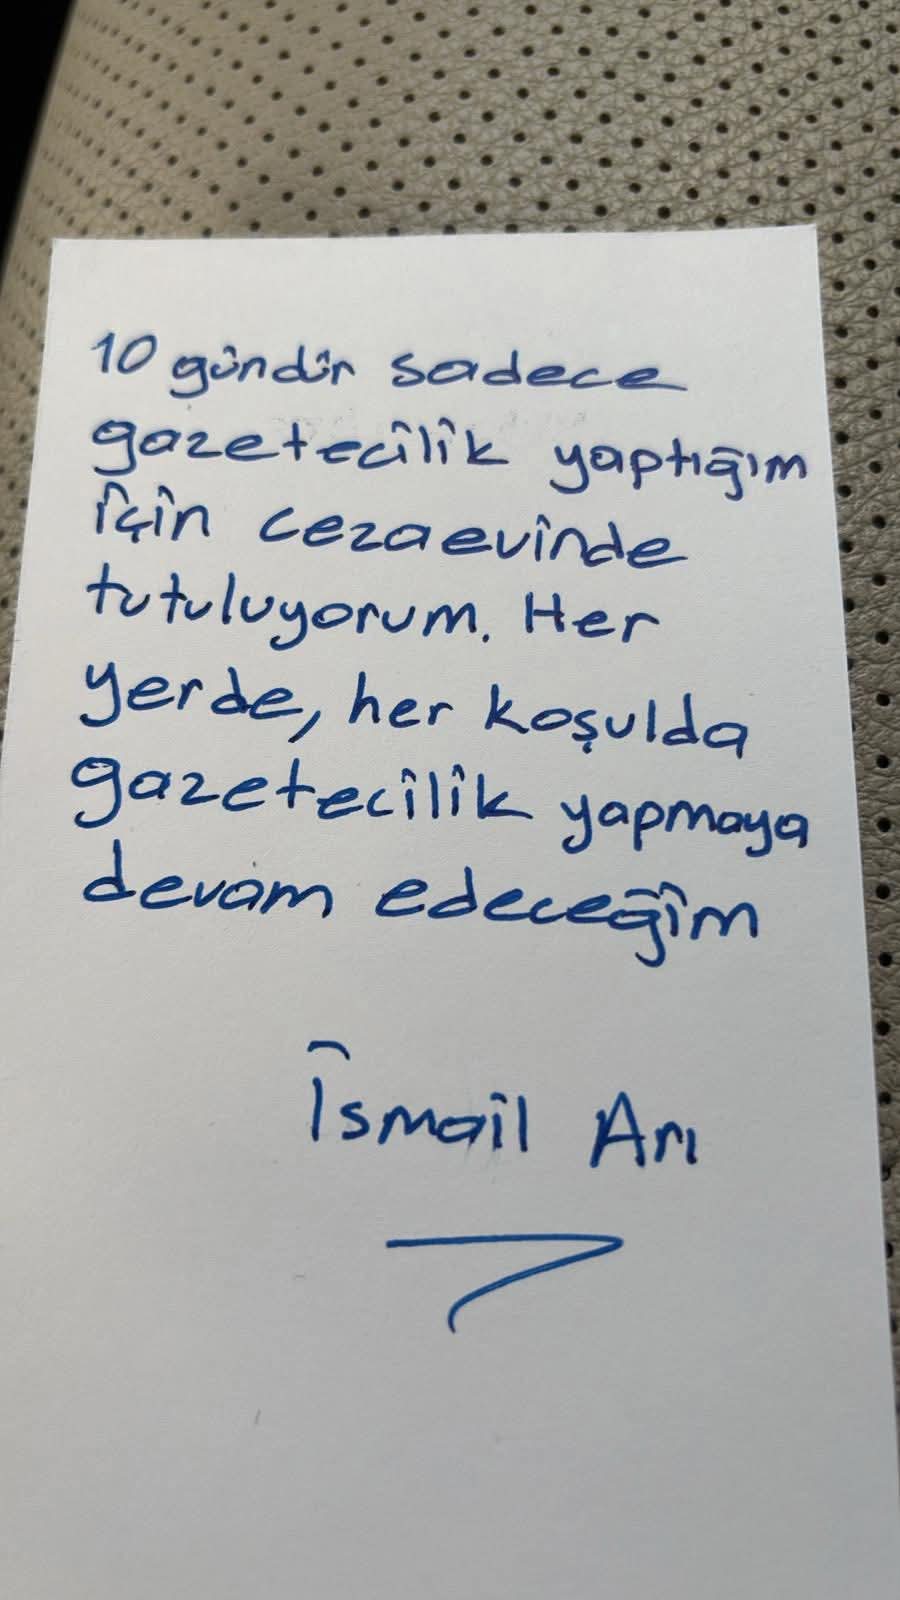 10 gündür sadece
gazetecilik yaptığım
için cezaevinde
tutuluyorum. Her
yerde, her koşulda
gazetecilik yapmaya
devam edeceğim
İsmail Arı